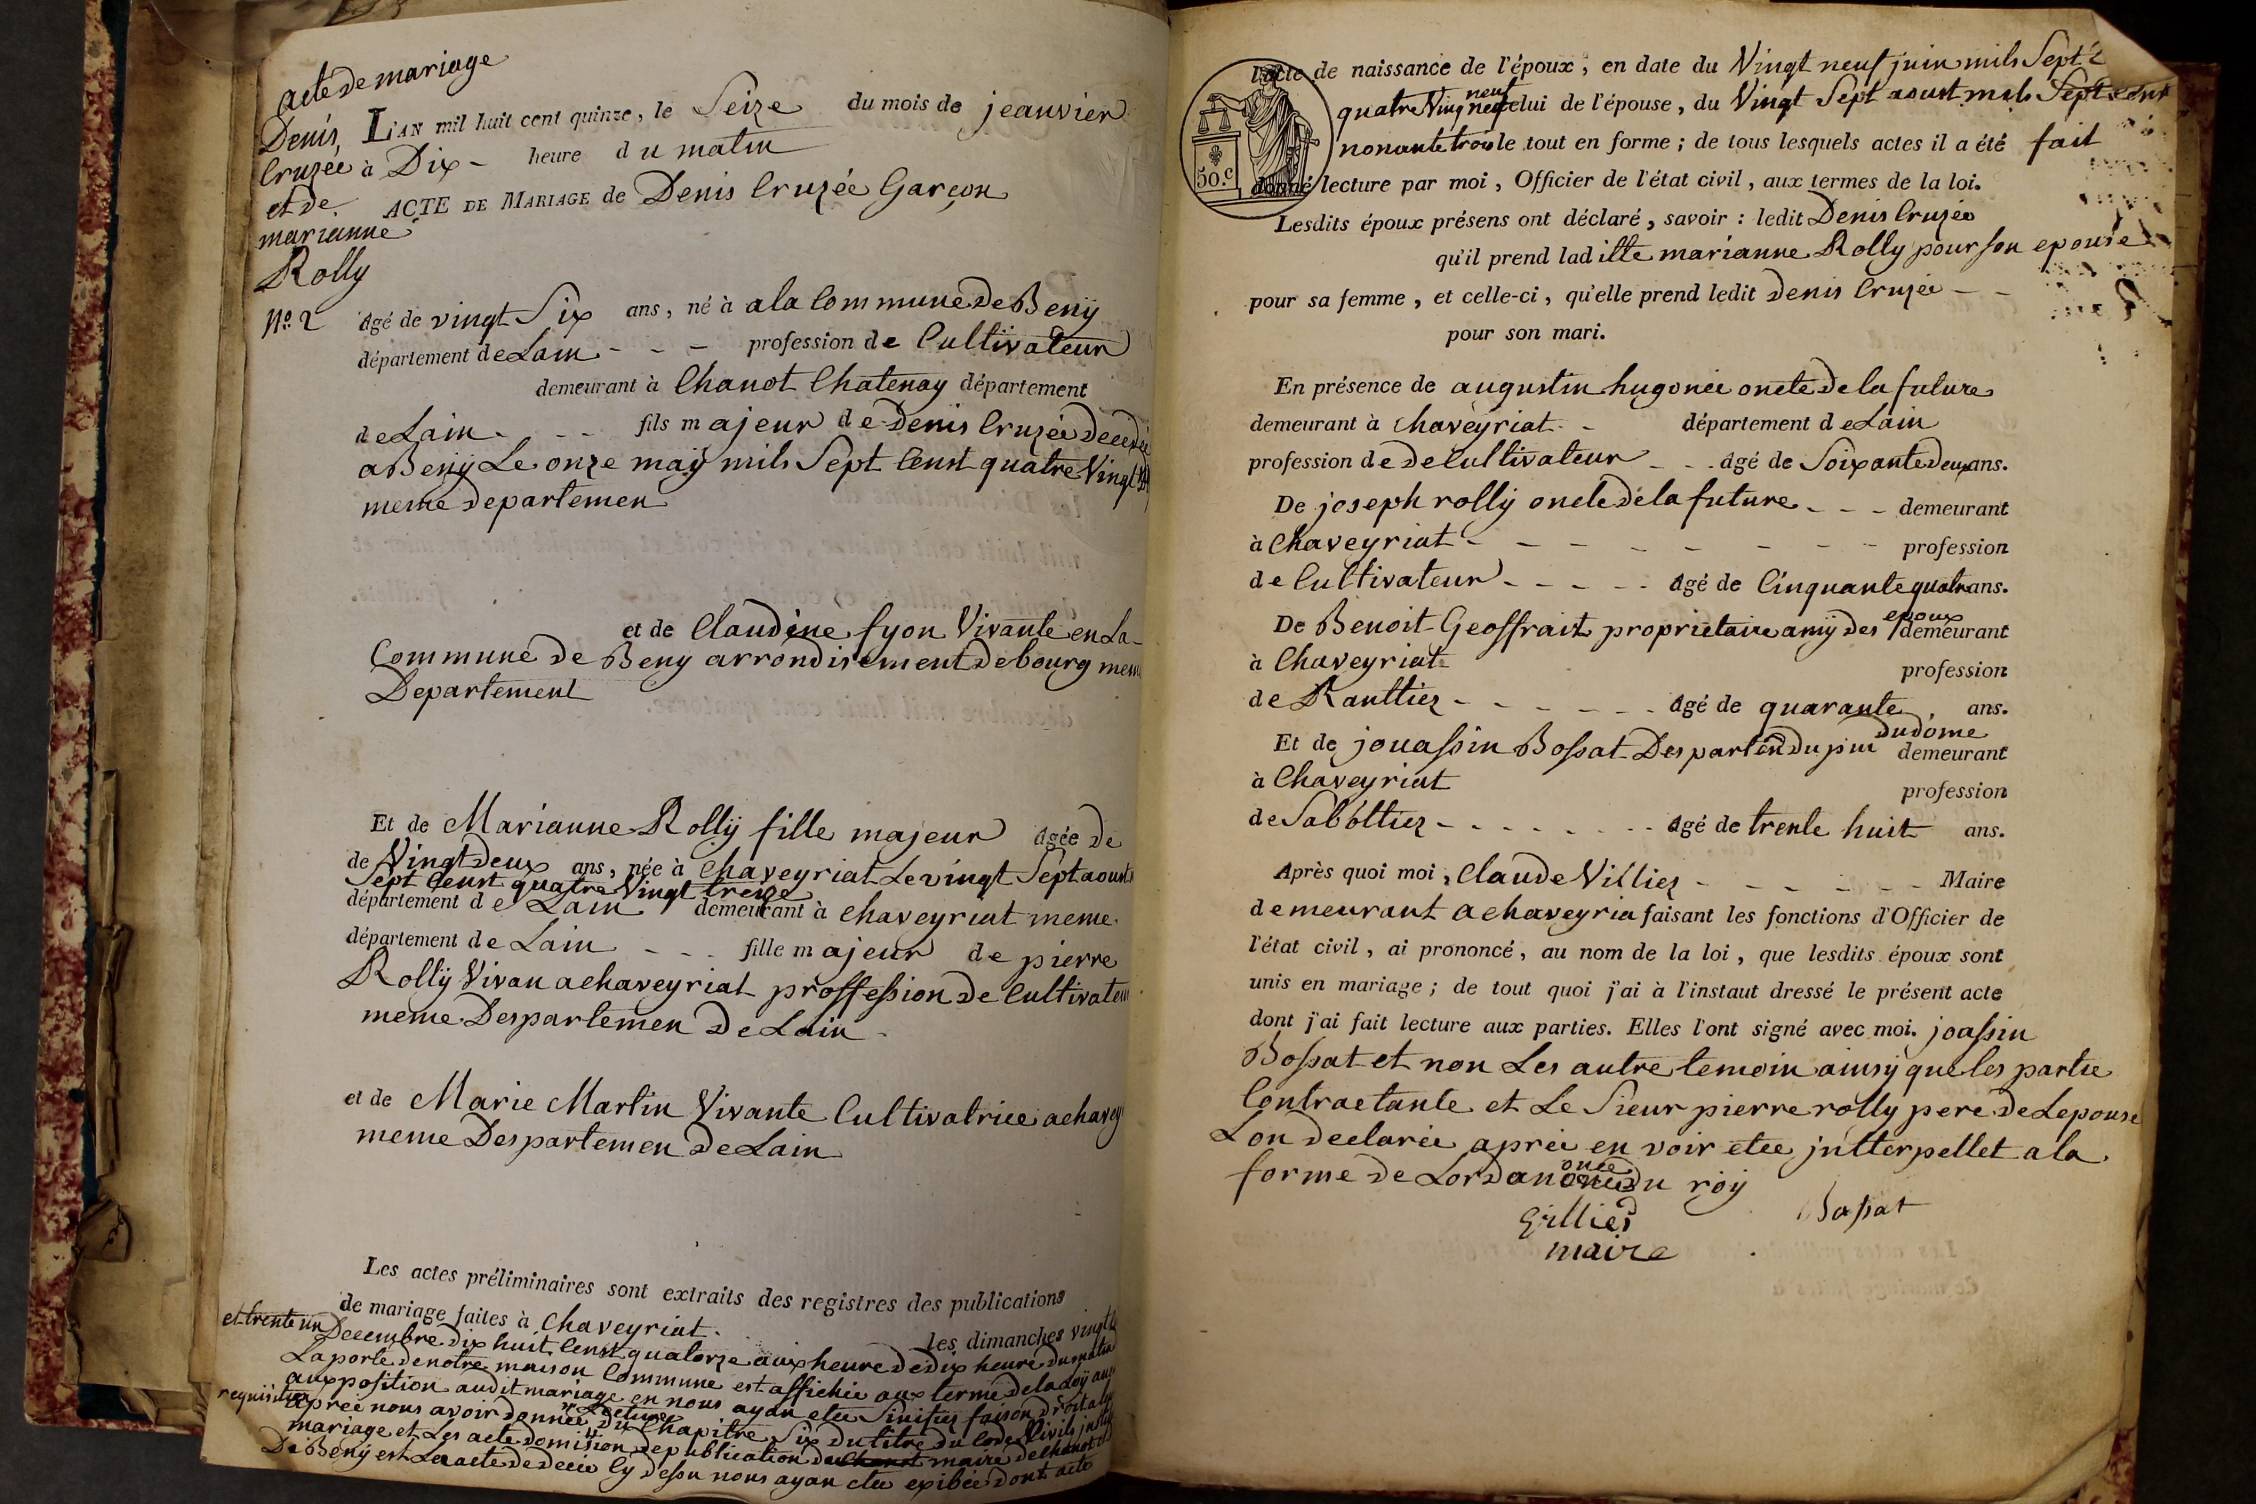 acte de mariage
Denis
Cruzée
et de
marianne
Rolly
No. 2
L'AN mil huit cent quinze, le Seize du mois de jeanvier
à Dix - heure du matin
ACTE DE MARIAGE de Denis Cruzée Garçon
âgé de vingt Six ans, né à a la Commune de Benÿ
département de Lain - - - profession de Cultivateur
demeurant à Chanot Chatenay département
de Lain - - - fils majeur de Denis Cruzée decedée
a Benÿ Le onze maÿ mils Sept Censt quatre Vingt
meme departemen
et de Claudine fyon Vivante en La
Commune de Beny arrondisement de bourg meme
Departement
Et de Marianne Rollÿ fille majeur âgée de
de Vingt Deux ans, née à Chaveyriat Le vingt Sept aoust
Sept Censt quatre Vingt treize
département de Lain demeurant à chaveyriat meme
département de Lain - - - fille majeur de pierre
Rollÿ Vivan a chaveyriat proffession de Cultivateur
meme Despartemen De Lain -
et de Marie Martin Vivante Cultivatrice a chavey
meme Despartemen De Lain
Les actes préliminaires sont extraits des registres des publications
de mariage faites à Chaveyriat. les dimanches vingt
et trente un Decembre dix huit Censt quatorze aux heure de dix heure du matin
La porte de notre maison Commune est affichée aux terme de la Loÿ
aux position audit mariage en nous ayan etee Sinifiez faison droit a
requisition apree nous avoir donnée Lecture du Chapitre Six du titre du Code Civil
mariage et Les acte domission de publication du Chanot maire de chanot
De Benÿ est Les acte de decée Cy dessu nous ayan etee exibée dont acte
50.c
l'acte de naissance de l'époux, en date du Vingt neuf juin mils Sept
quatre Ving neuf neuf celui de l'épouse, du Vingt Sept aoust mils Sept censt
nonante trois le tout en forme; de tous lesquels actes il a été fait
donné lecture par moi, Officier de l'état civil, aux termes de la loi.
Lesdits époux présens ont déclaré, savoir: ledit Denis Cruzée
qu'il prend laditte marianne Rolly pour son epouse
pour sa femme, et celle-ci, qu'elle prend ledit Denis Cruzée - -
pour son mari.
En présence de augustin hugonée oncle de la future
demeurant à chaveyriat - - département de Lain
profession de de Cultivateur - - - âgé de Soixante deux ans.
De joseph rolly oncle de la future - - - demeurant
à Chaveyriat - - - - - - - - profession
de Cultivateur - - - - - âgé de Cinquante quatre ans.
De Benoit Geoffrait proprietaire amÿ des epoux demeurant
à Chaveyriat profession
de Rauttier - - - - - - âgé de quarante ans.
Et de jouassin Bossat Des parten du pui du dome demeurant
à Chaveyriat profession
de Sabottier - - - - - - - - âgé de trente huit ans.
Après quoi moi, Claude Villier - - - - - - Maire
demeurant a chaveyria faisant les fonctions d'Officier de
l'état civil, ai prononcé, au nom de la loi, que lesdits époux sont
unis en mariage; de tout quoi j'ai à l'instaut dressé le présent acte
dont j'ai fait lecture aux parties. Elles l'ont signé avec moi. joassin
Bossat et non Les autre temoin ainsÿ que les partie
Contractante et Le Sieur pierre rolly pere de Lepouse
Lon declarée aprée en voir etee jntterpellet a la
forme de Lordanonce du röy
Bossat
maire